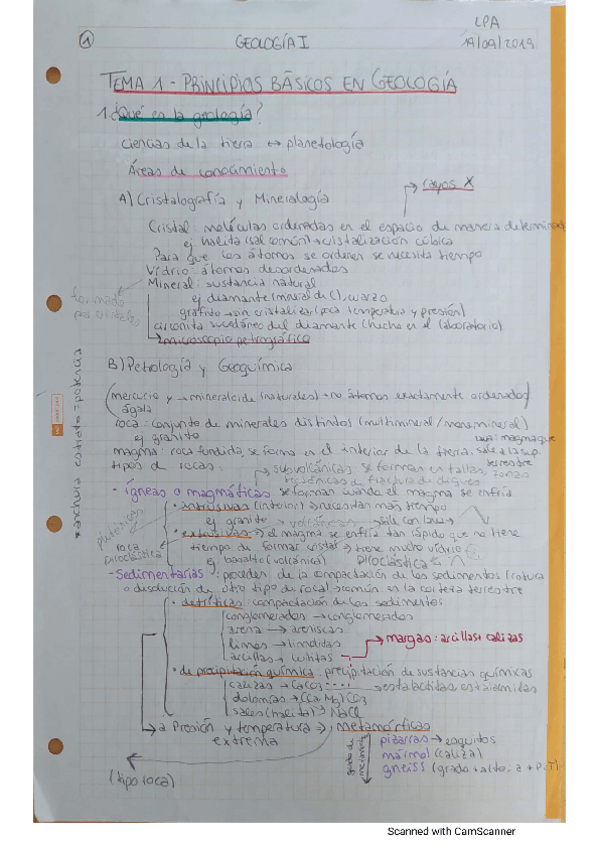 1
GEOLOGÍA I
LPA
19/09/2019
TEMA 1 - PRINCIPIOS BÁSICOS EN GEOLOGÍA
1. ¿Qué es la geología?
ciencias de la tierra ↔ planetología
Áreas de conocimiento
A) Cristalografía y Mineralogía
→ rayos X
Cristal: moléculas ordenadas en el espacio de manera determinada
ej halita (sal común) → cristalización cúbica
Para que los átomos se ordenen se necesita tiempo
Vidrio: átomos desordenados
Mineral: sustancia natural
formado
ej diamante (mineral de C), cuarzo
grafito → sin cristalizar (poca temperatura y presión)
circonita sucedáneo del diamante (hecho en el laboratorio)
→ microscopio petrográfico
B) Petrología y Geoquímica
* anchura estrato = potencia
(mercurio y → mineraloide (naturales) → no átomos exactamente ordenados)
ágata
roca: conjunto de minerales distintos (multimineral / monomineral)
ej granito
lava: magma que
magma: roca fundida, se forma en el interior de la tierra.
sale a la sup.
terrestre
tipos de rocas:
→ subvolcánicas: se forman en fallas, zonas
de fractura de diques
- ígneas o magmáticas se forman cuando el magma se enfría
• intrusivas (interior) → necesitan más tiempo
plutónicas
ej granito → volcánicas → sale con lava
• extrusivas → el magma se enfría tan rápido que no tiene
roca
piroclástica
tiempo de formar cristal → tiene mucho vidrio
ej basalto (volcánica)
piroclástica
- Sedimentarias: proceden de la compactación de los sedimentos (rotura
o disolución de otro tipo de roca) común en la corteza terrestre
• detríticas: compactación de los sedimentos
conglomerados → conglomerados
arena → areniscas
limos → limolitas
arcillas → lutitas
→ margas: arcillas + calizas
• de precipitación química: precipitación de sustancias químicas
calizas → CaCO3
→ estalactitas estalagmitas
dolomías → (Ca Mg) CO3
sales (halita) → NaCl
→ a Presión y temperatura → • metamórficas
extrema
grado de
pizarras → esquistos
mármol (caliza)
gneiss (grado + alto: a + P: T)
(tipo roca)
Scanned with CamScanner